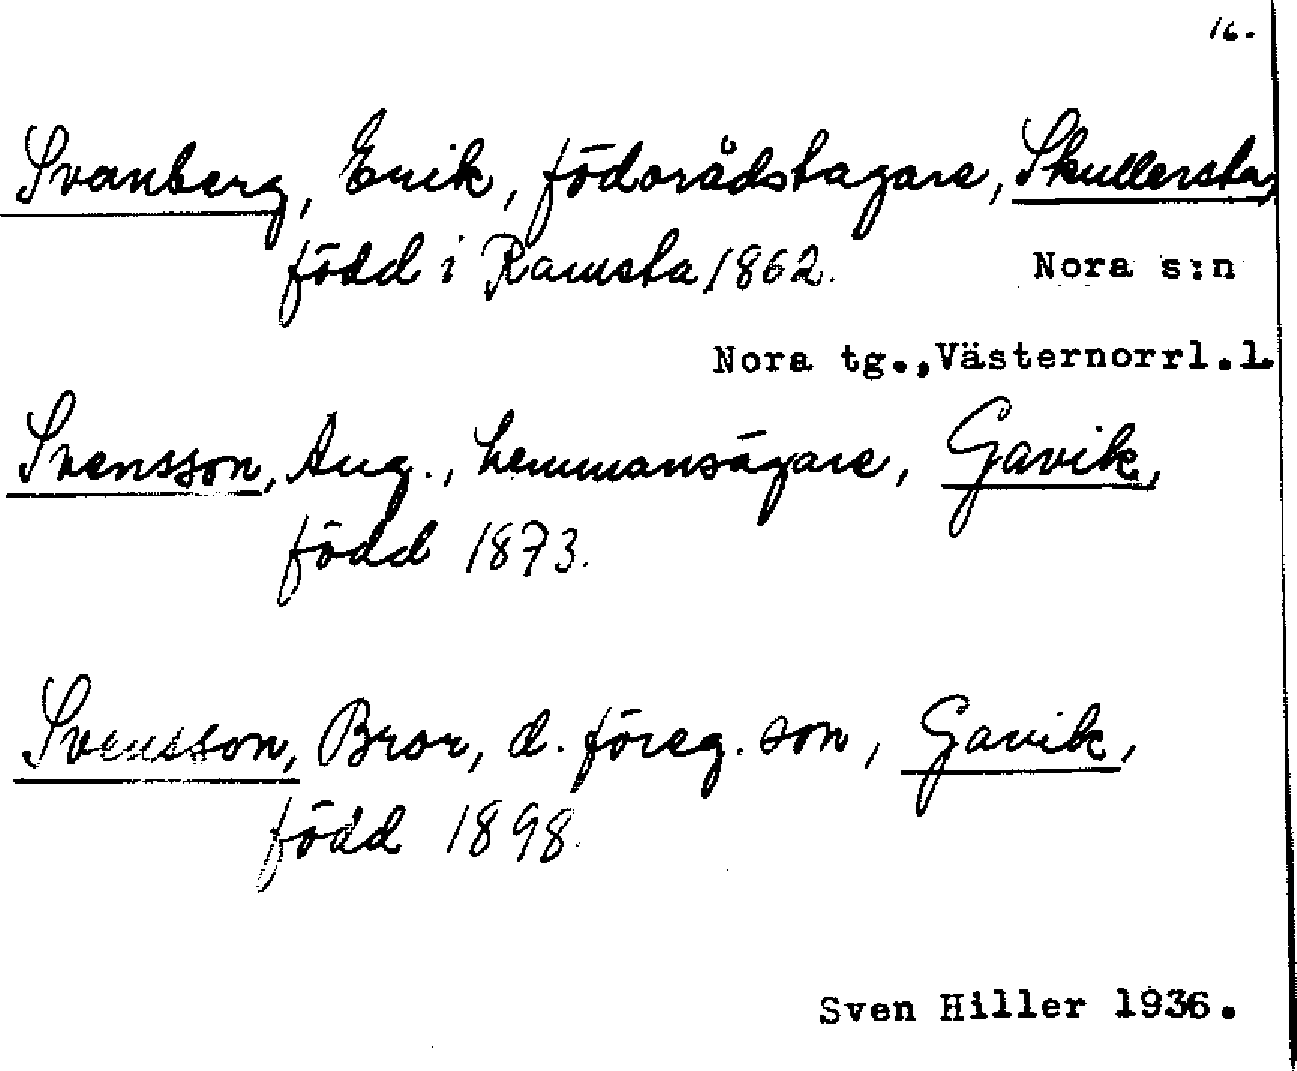 16.
Svanberg, Erik, födorådstagare, Skullersta,
född i Ramsta 1862.
Nora s:n
Nora tg., Västernorrl.l.
Svensson, Aug., hemmansägare, Gavik,
född 1873.
Svensson, Bror, d. föreg. son, Gavik,
född 1898.
Sven Hiller 1936.